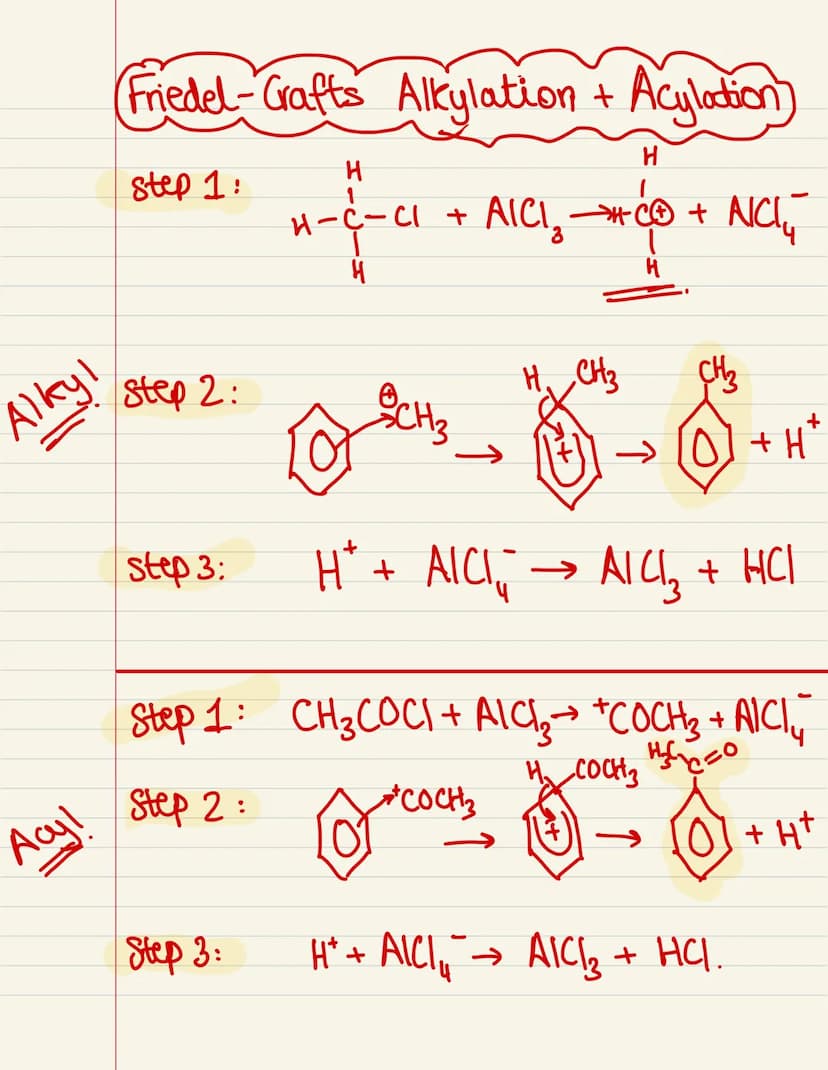 Friedel-Crafts Alkylation + Acylation
Step 1:
H
H-C-Cl + AlCl₃ → H-C⊕ + AlCl₄⁻
H
H
H
Alkyl!
Step 2:
⊕CH₃ → H CH₃ + → CH₃ + H⁺
Step 3: H⁺ + AlCl₄⁻ → AlCl₃ + HCl
Step 1: CH₃COCl + AlCl₃ → ⁺COCH₃ + AlCl₄⁻
Acyl!
Step 2: ⁺COCH₃ → H COCH₃ + → H₃C C=O + H⁺
Step 3: H⁺ + AlCl₄⁻ → AlCl₃ + HCl.